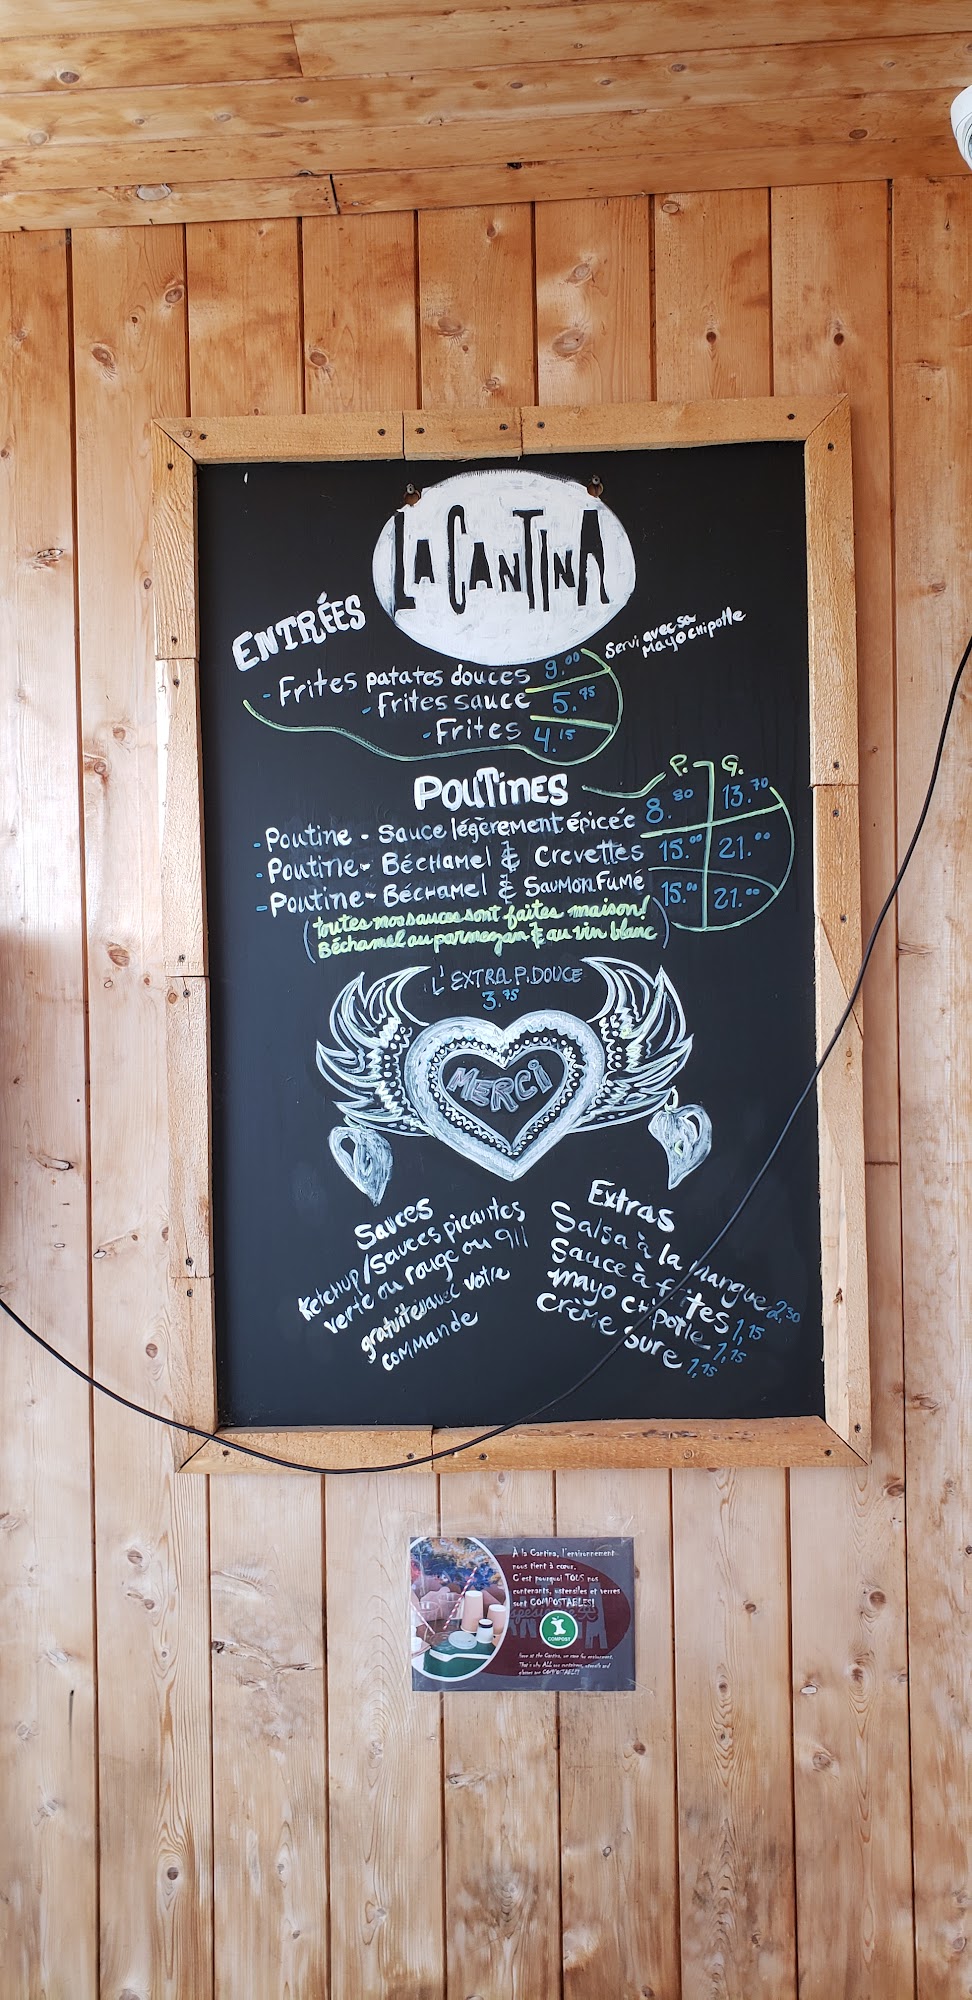 LA CANTINA
ENTRÉES
Servi avec sa
Mayo chipotle
- Frites patates douces 9.00
- Frites sauce 5.75
- Frites 4.15
POUTINES P. G.
- Poutine - Sauce légèrement épicée 8.80 13.70
- Poutine - Béchamel & Crevettes 15.00 21.00
- Poutine - Béchamel & Saumon Fumé 15.00 21.00
(toutes nos sauces sont faites maison!
Béchamel au parmezan & au vin blanc)
L'EXTRA P. DOUCE
3.75
MERCI
Sauces
Ketchup/Sauces picantes
verte ou rouge ou 911
gratuites avec votre
commande
Extras
Salsa à la mangue 2,30
Sauce à frites 1,15
mayo chipotle 1,15
Crème sure 1,15
À la Cantina, l'environnement
nous tient à cœur.
C'est pourquoi TOUS nos
contenants, ustensiles et verres
sont COMPOSTABLES!
COMPOST